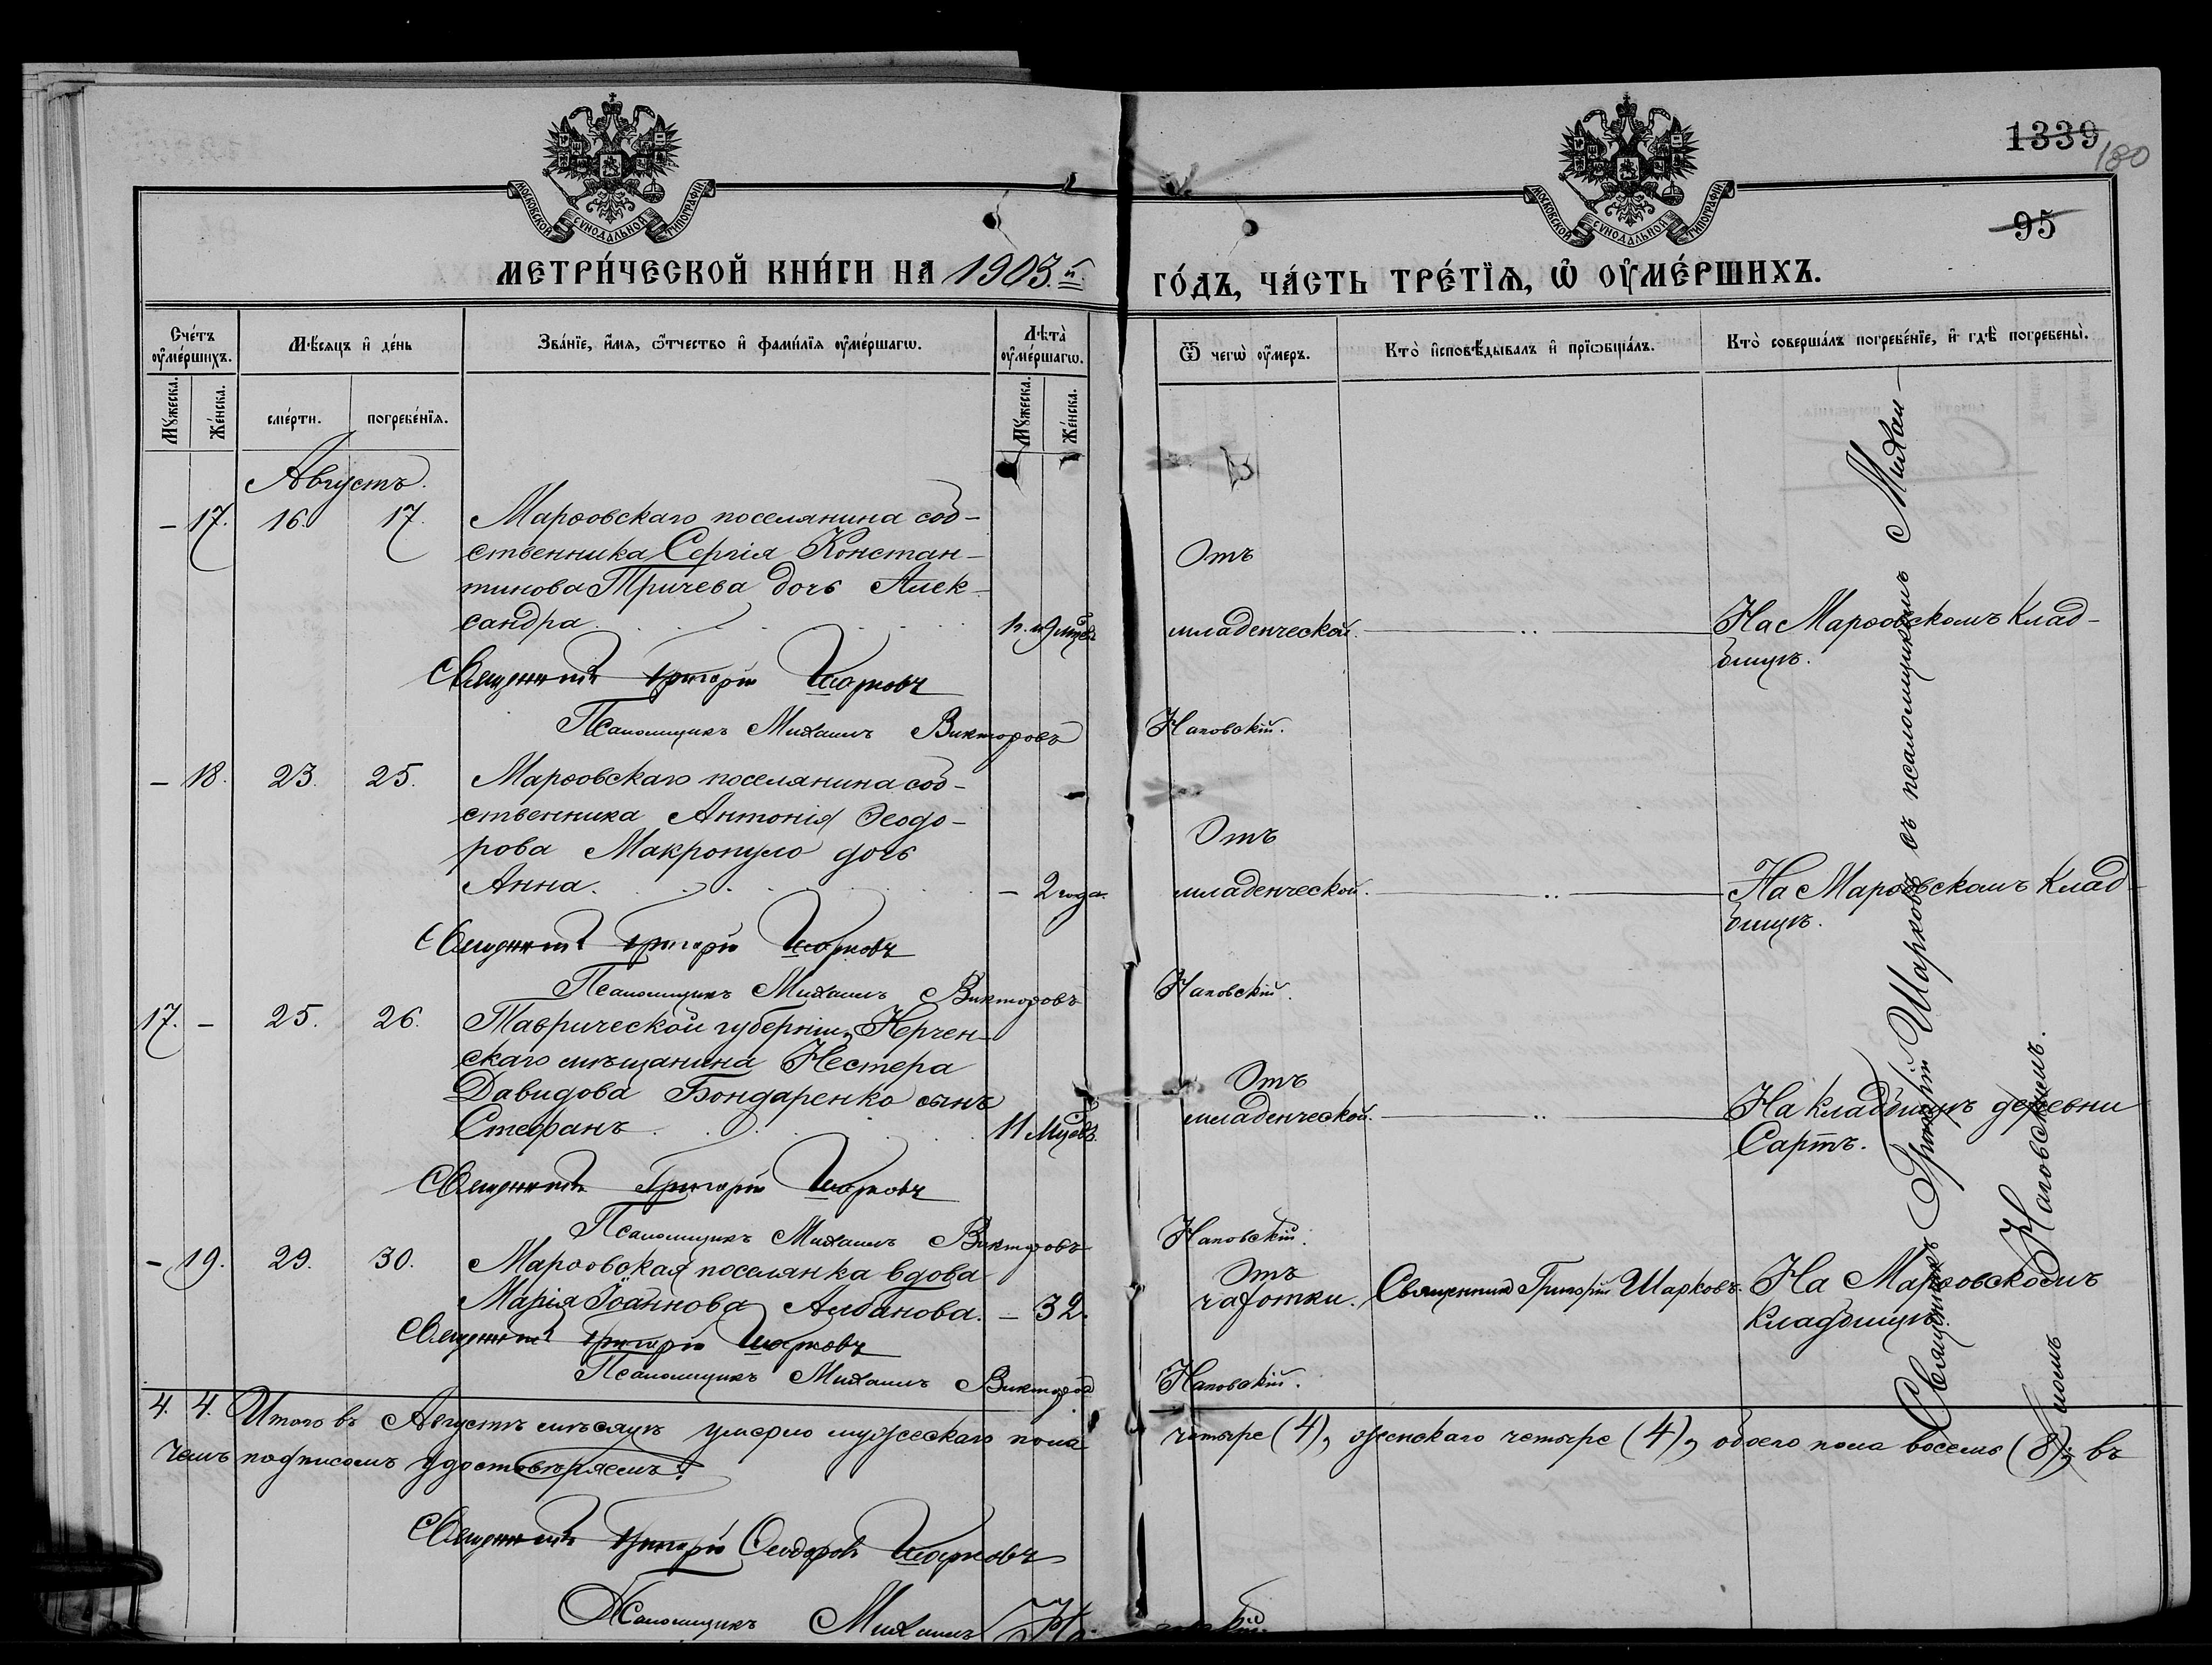 1339
180
95
МОСКОВСКОЙ СѴНОДАЛЬНОЙ ТИПОГРАФІИ.
МОСКОВСКОЙ СѴНОДАЛЬНОЙ ТИПОГРАФІИ.
МЕТРИ́ЧЕСКОЙ КНИ́ГИ НА 1903.й
ГО́ДЪ, ЧА́СТЬ ТРЕ́ТЇѦ, Ѽ ОУ҆МЕ́РШИХЪ.
Сче́тъ оу҆ме́ршихъ.
Мѣ́сяцъ и҆ де́нь
Зва́нїе, и҆́мя, ѻ҆́тчество и҆ фами́лїя оу҆ме́ршагѡ.
Лѣта̀ оу҆ме́ршагѡ.
Ѿ чегѡ̀ оу҆́меръ.
Кто̀ и҆сповѣ́дывалъ и҆ прїѡбща́лъ.
Кто̀ соверша́лъ погребе́нїе, и҆ гдѣ̀ погребены̀.
Мꙋ́жеска.
Же́нска.
сме́рти.
погребе́нїя.
Мꙋ́жеска.
Же́нска.
Августъ.
– 17. 16. 17. Марѳовскаго поселянина соб-
ственника Сергія Констан-
тинова Тричева дочь Алек-
сандра
1 г. и 9 мцевъ
Отъ
младенческой.
На Марѳовскомъ клад-
бищѣ.
Священникъ Григорій Шарковъ
Псаломщикъ Михаилъ Викторовъ Наповскій.
– 18. 23. 25. Марѳовскаго поселянина соб-
ственника Антонія Ѳеодо-
рова Макропуло дочь
Анна. – 2 года.
Отъ
младенческой.
На Марѳовскомъ клад-
бищѣ.
Священникъ Григорій Шарковъ
Псаломщикъ Михаилъ Викторовъ Наповскій.
17. – 25. 26. Таврической губерніи, Керчен-
скаго мѣщанина Нестера
Давидова Бондаренко сынъ
Стефанъ 11 мцевъ.
Отъ
младенческой.
На кладбищѣ деревни
Сартъ.
Священникъ Григорій Шарковъ
Псаломщикъ Михаилъ Викторовъ Наповскій.
– 19. 29. 30. Марѳовская поселянка вдова
Марія Іоаннова Албанова. – 32.
Отъ
чахотки.
Священникъ Григорій Шарковъ.
На Марѳовскомъ
кладбищѣ.
Священникъ Григорій Шарковъ
Псаломщикъ Михаилъ Викторов Наповскій.
Священникъ Григорій Шарковъ съ псаломщикомъ Михаи-
ломъ Наповскимъ.
4. 4. Итого въ Августѣ мѣсяцѣ умерло мужескаго пола четыре (4), женскаго четыре (4), обоего пола восемь (8), въ
чемъ подписомъ удостовѣряемъ:
Священникъ Григорій Ѳеодоровъ Шарковъ
Псаломщикъ Михаилъ